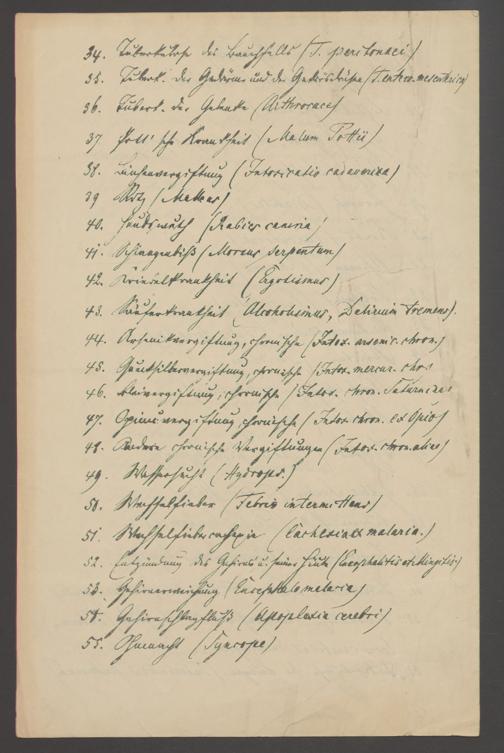 34. Tuberkulose des Bauchfells (T. peritonaei)
35. Tuberk. der Gedärme und der Gekrösdrüsen (T. entero-mesenterica)
36. Tuberk. der Gelenke (Arthrocace)
37 Pott'sche Krankheit (Malum Pottii)
38. Leichenvergiftung (Intoxicatio cadaverica)
39 Rotz (Malleus)
40. Hundswuth (Rabies canina)
41. Schlangenbiß (Morsus serpentum)
42. Kriebelkrankheit (Ergotismus)
43. Säuferkrankheit (Alcoholismus, Delirium tremens).
44. Arsenikvergiftung, chronische (Intox. arsenic. chron.)
45. Quecksilbervergiftung, chronische (Intox. mercur. chr.)
46. Bleivergiftung, chronische (Intox. chron. Saturnina)
47. Opiumvergiftung, chronische (Intox. chron. ex Opio)
48. Andere chronische Vergiftungen (Intox. chron. aliae)
49. Wassersucht (Hydrops.)
50. Wechselfieber (Febris intermittens)
51. Wechselfiebercachexie (Cachexia ex malaria.)
52. Entzündung des Gehirns u. seiner Häute (Encephalitis et Meningitis)
53. Gehirnerweichung (Encephalomalacia)
54. Gehirnschlagfluß (Apoplexia cerebri)
55. Ohnmacht (Syncope)